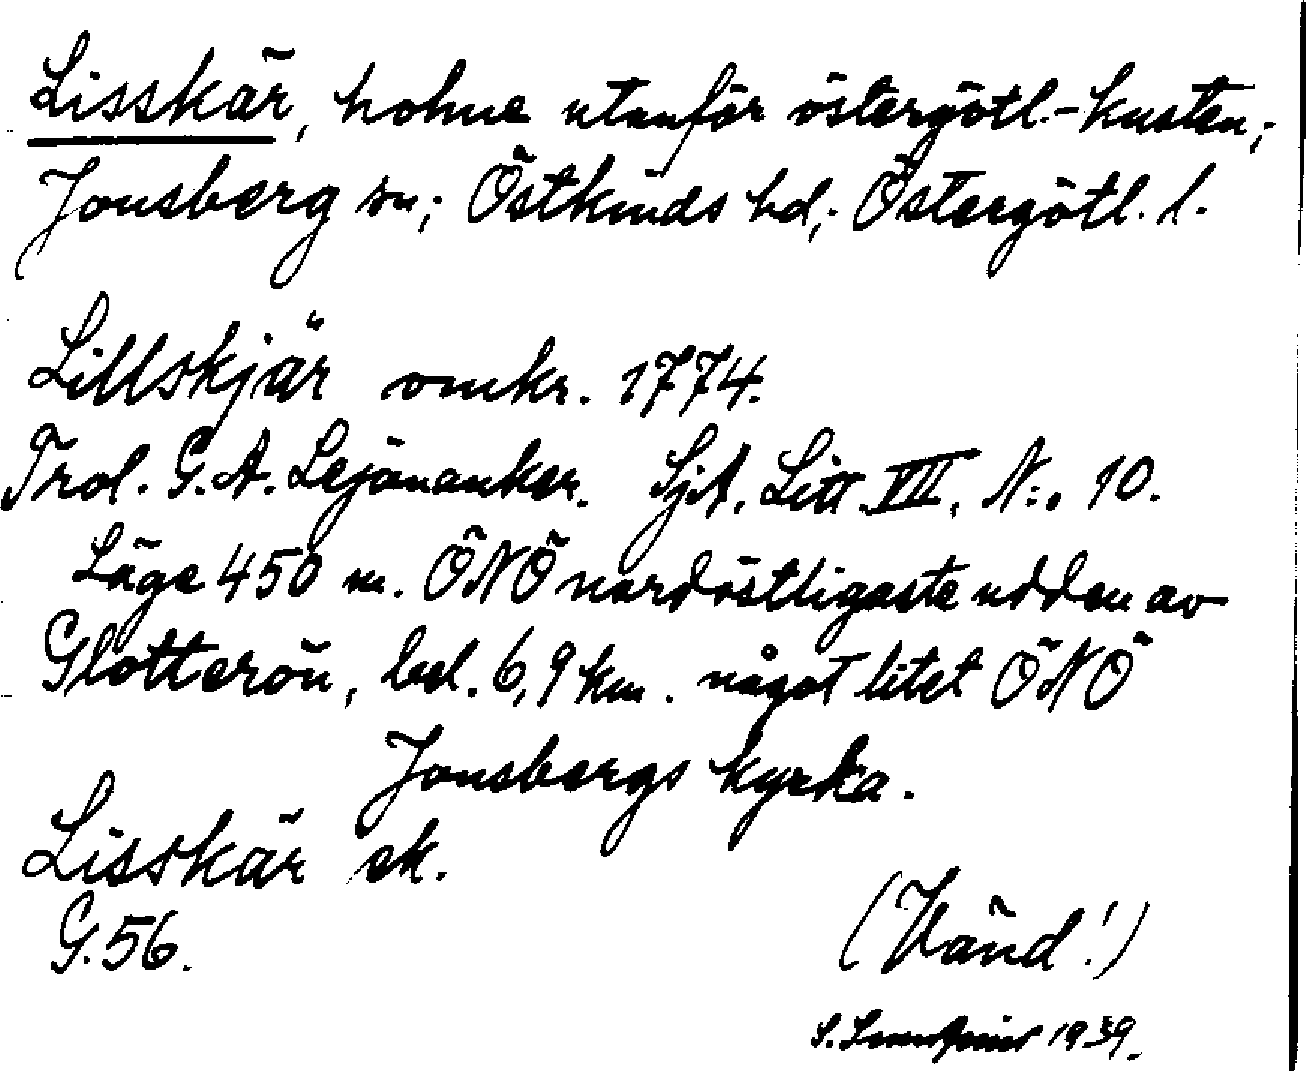 Lisskär, holme utanför östergötl.-kusten,;
Jonsberg sn,; Östkinds hd,; Östergötl. l.
Lillskjär omkr. 1774.
Trol. G. A. Lejonanker. Sjk. Litt. VII. N:. 10.
Läge 450 m. ÖNÖ nordöstligaste udden av
Glotterön, bel. 6,9 km. något litet ÖNÖ
Jonsbergs kyrka.
Lisskär ek.
G. 56.
(Vänd!)
S. 1939.